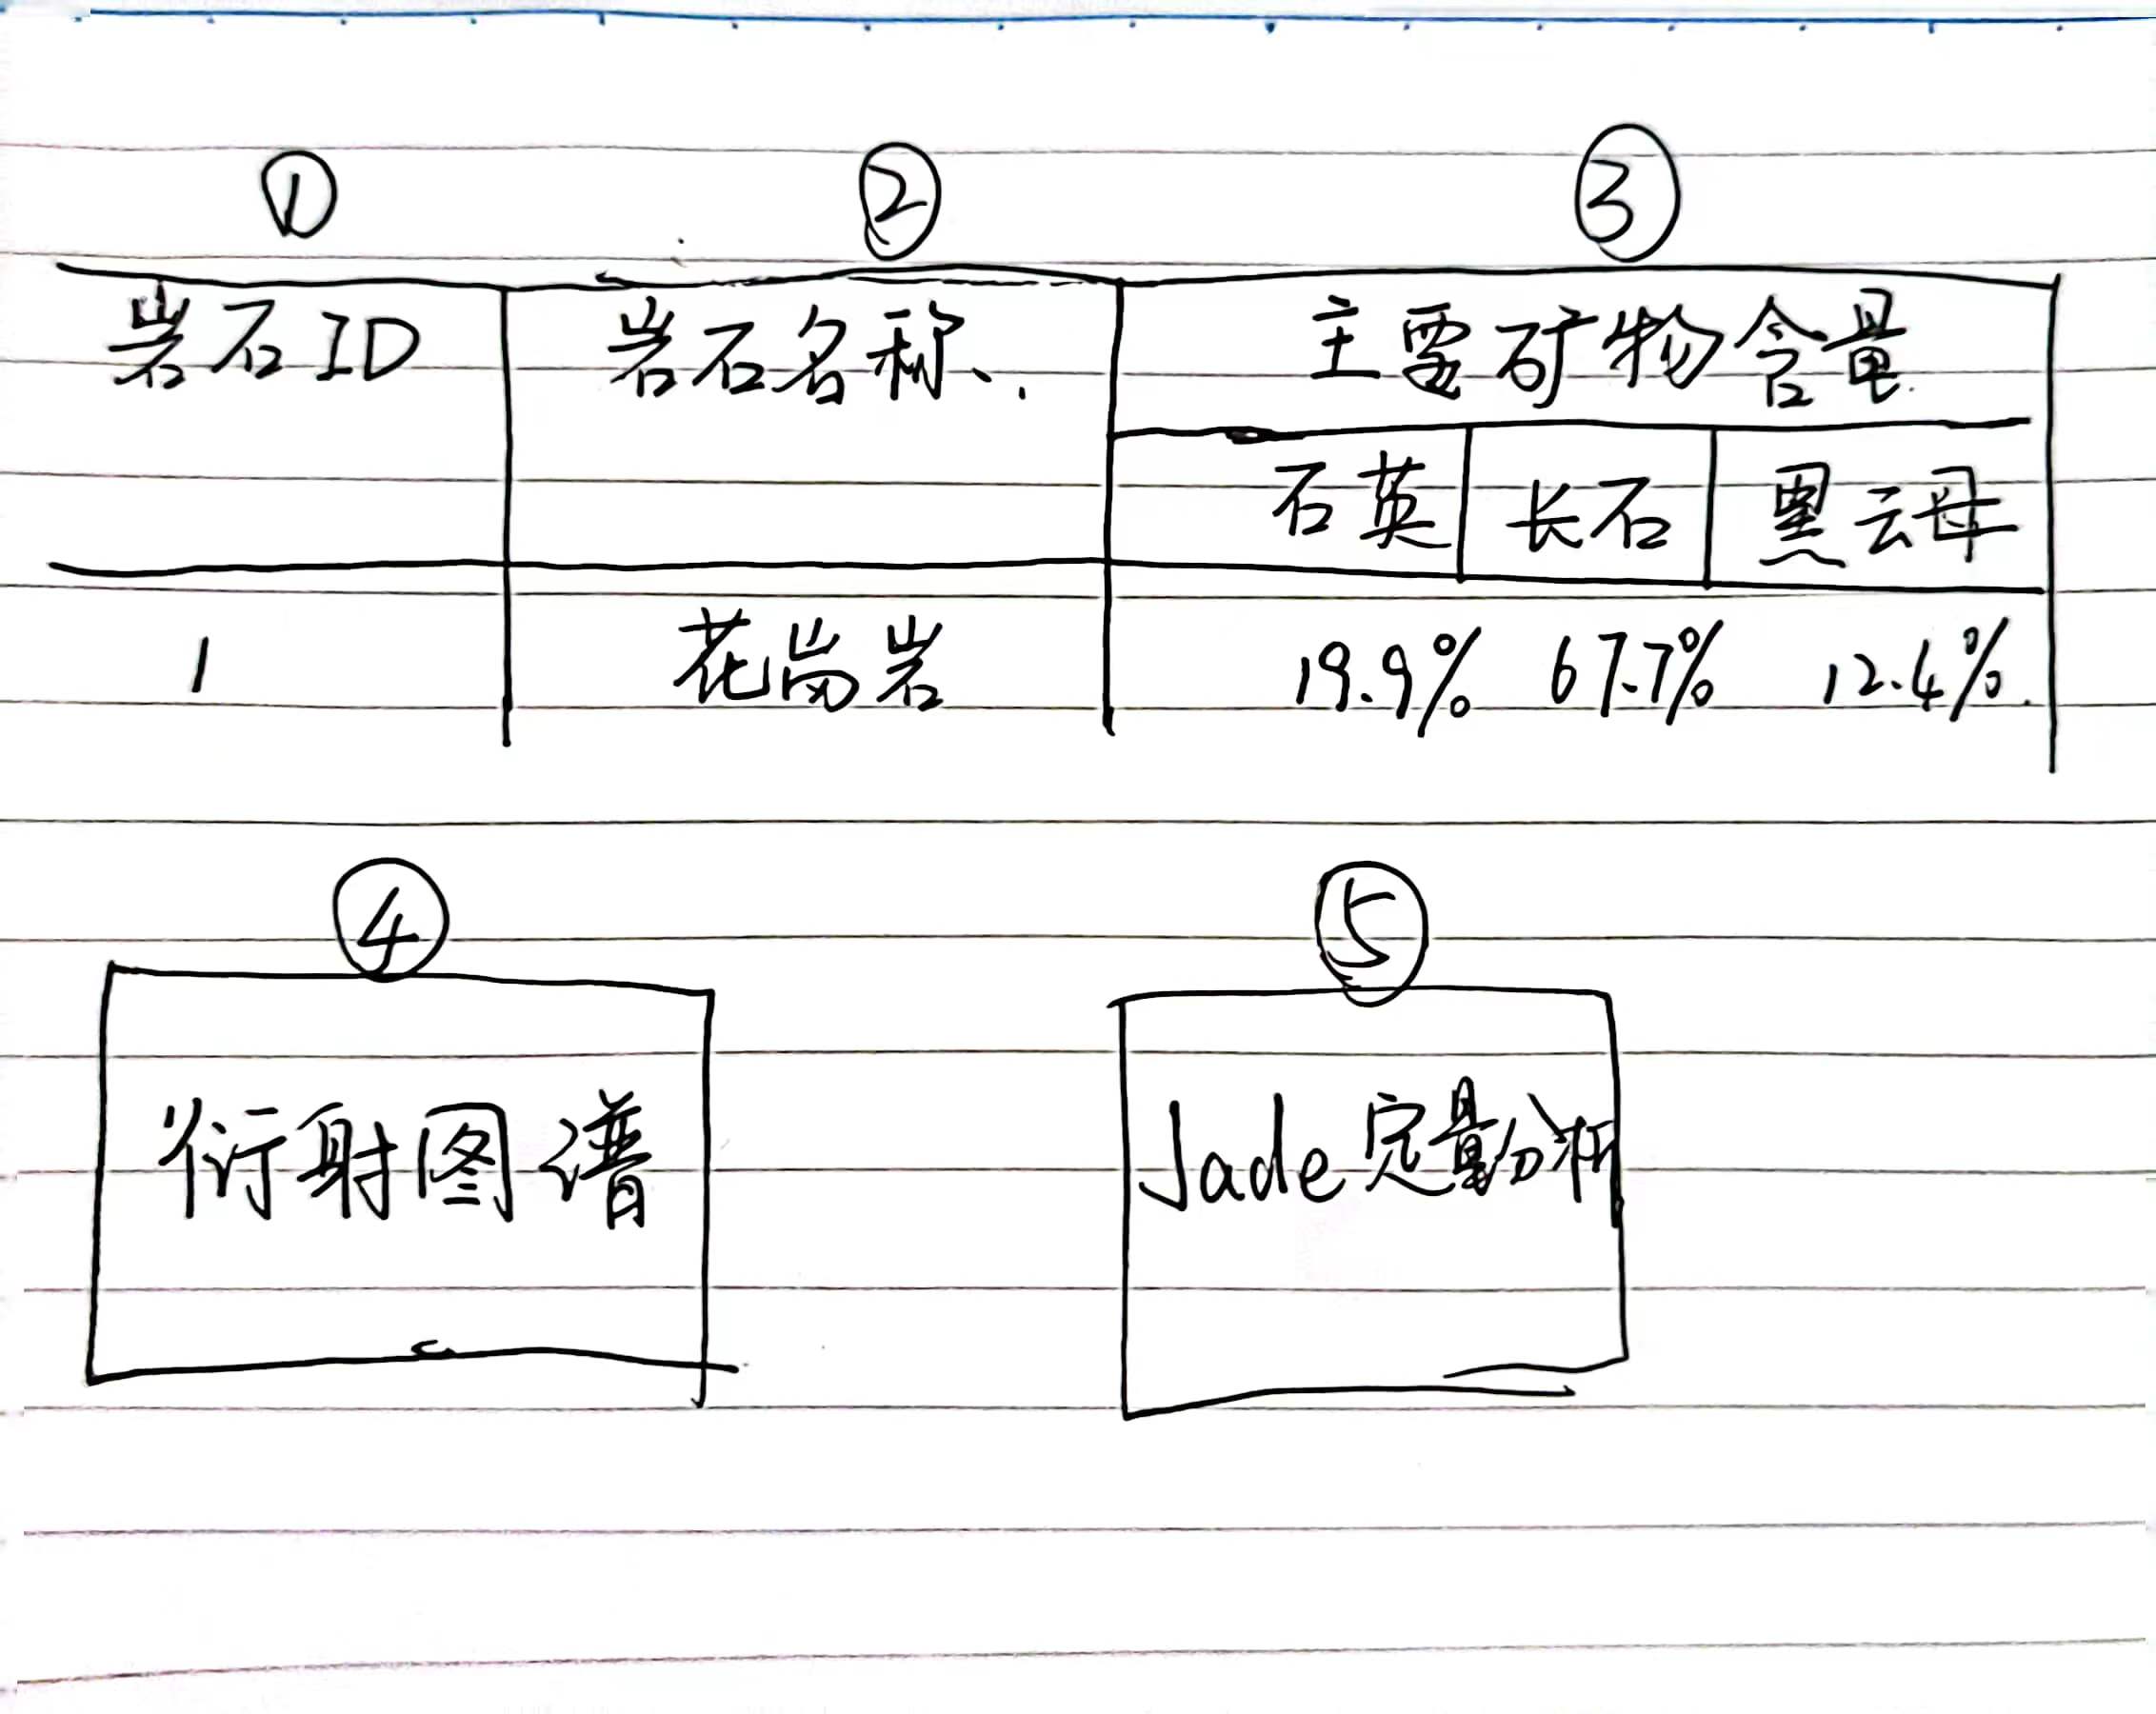 ① ② ③
岩石ID 岩石名称 主要矿物含量
石英 长石 黑云母
1 花岗岩 19.9% 67.7% 12.4%
④ ⑤
衍射图谱 Jade定量分析